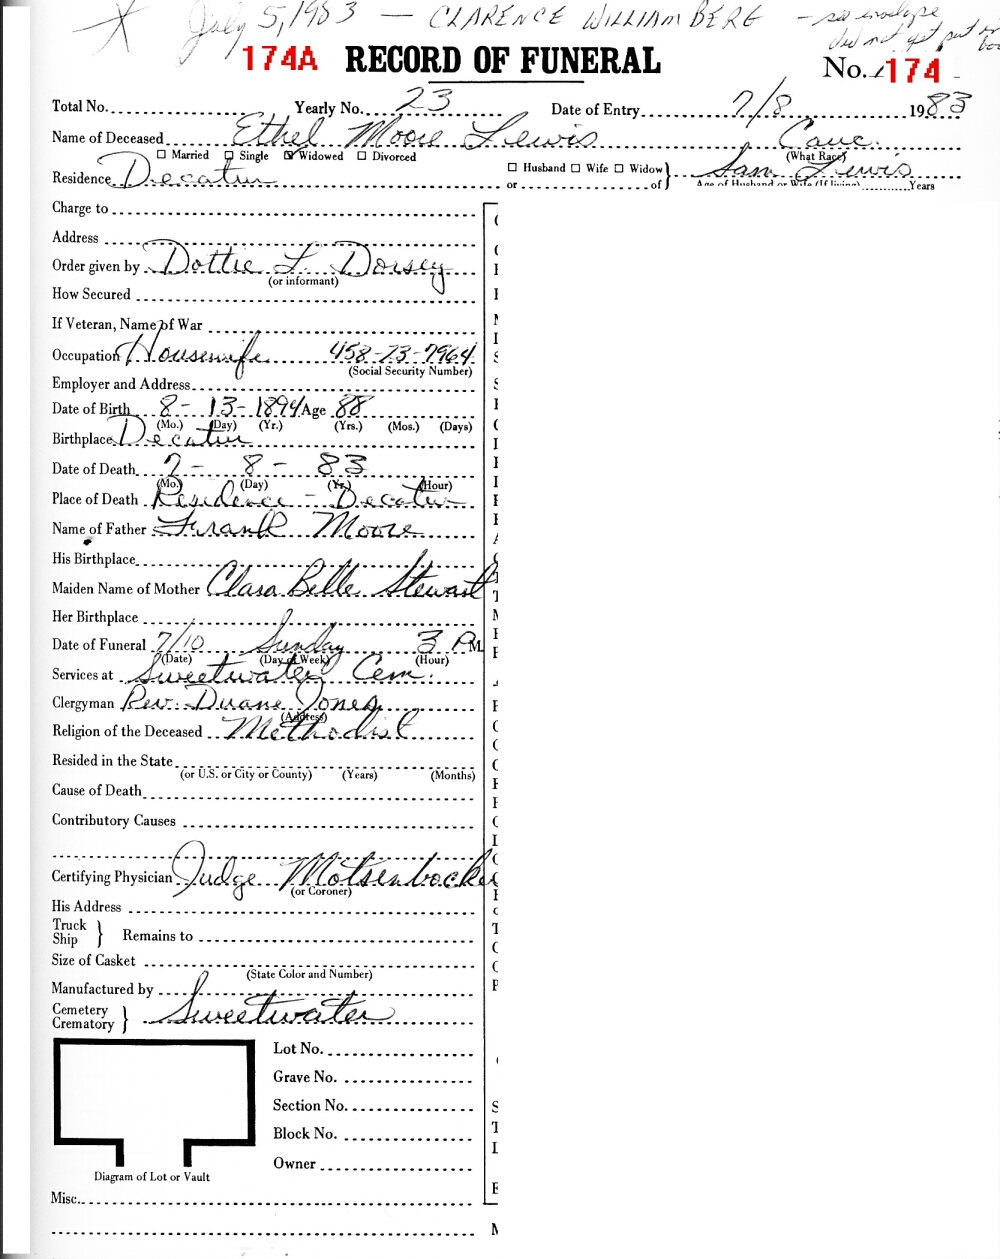 July 5, 1983 — CLARENCE WILLIAM BERG — see envelope
did not get put in
174A RECORD OF FUNERAL No. 174
Total No. Yearly No. 23 Date of Entry 7/8 1983
Name of Deceased Ethel Moore Lewis Cauc.
☐ Married ☐ Single ☑ Widowed ☐ Divorced (What Race)
Residence Decatur ☐ Husband ☐ Wife ☐ Widow } Sam Lewis
or of } Age of Husband or Wife (If living) Years
Charge to
Address
Order given by Dottie L. Dorsey
(or informant)
How Secured
If Veteran, Name of War
Occupation Housewife 458-23-7964
(Social Security Number)
Employer and Address
Date of Birth 8-13-1894 Age 88
(Mo.) (Day) (Yr.) (Yrs.) (Mos.) (Days)
Birthplace Decatur
Date of Death 7-8-83
(Mo.) (Day) (Yr.) (Hour)
Place of Death Residence - Decatur
Name of Father Frank Moore
His Birthplace
Maiden Name of Mother Clara Belle Stewart
Her Birthplace
Date of Funeral 7/10 Sunday 3 P M.
(Date) (Day of Week) (Hour)
Services at Sweetwater Cem.
Clergyman Rev. Duane Jones
(Address)
Religion of the Deceased Methodist
Resided in the State
(or U.S. or City or County) (Years) (Months)
Cause of Death
Contributory Causes
Certifying Physician Judge Motsenbocker
(or Coroner)
His Address
Truck
Ship } Remains to
Size of Casket
(State Color and Number)
Manufactured by
Cemetery
Crematory } Sweetwater
Lot No.
Grave No.
Section No.
Block No.
Owner
Diagram of Lot or Vault
Misc.